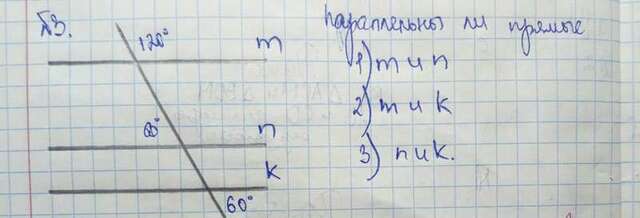 №3.
Параллельны ли прямые
120° m
1) m и n
2) m и k
60° n
3) n и k.
k
60°